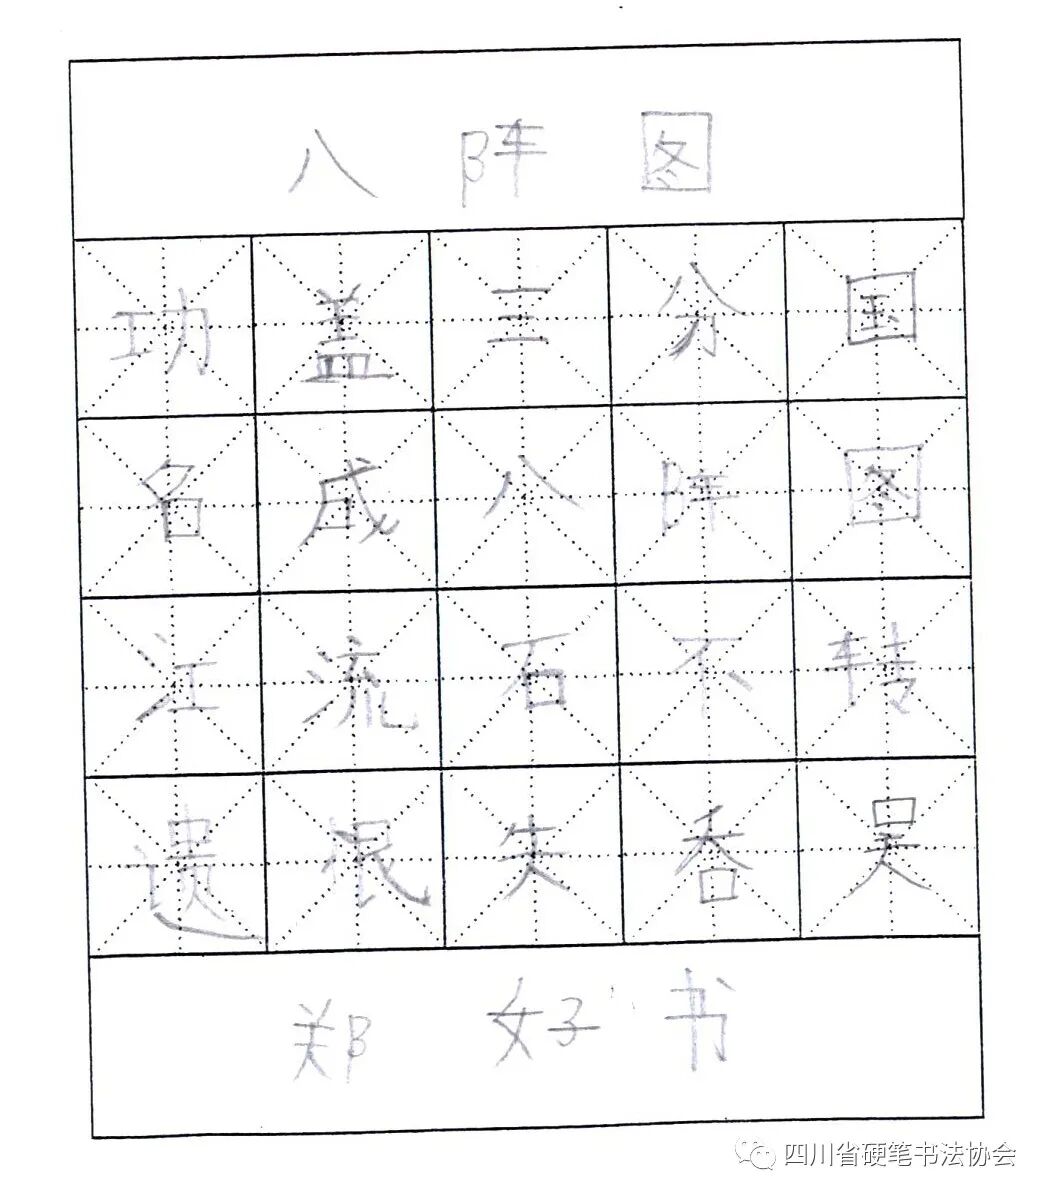 八阵图
功盖三分国
名成八阵图
江流石不转
遗恨失吞吴
郑好书
四川省硬笔书法协会